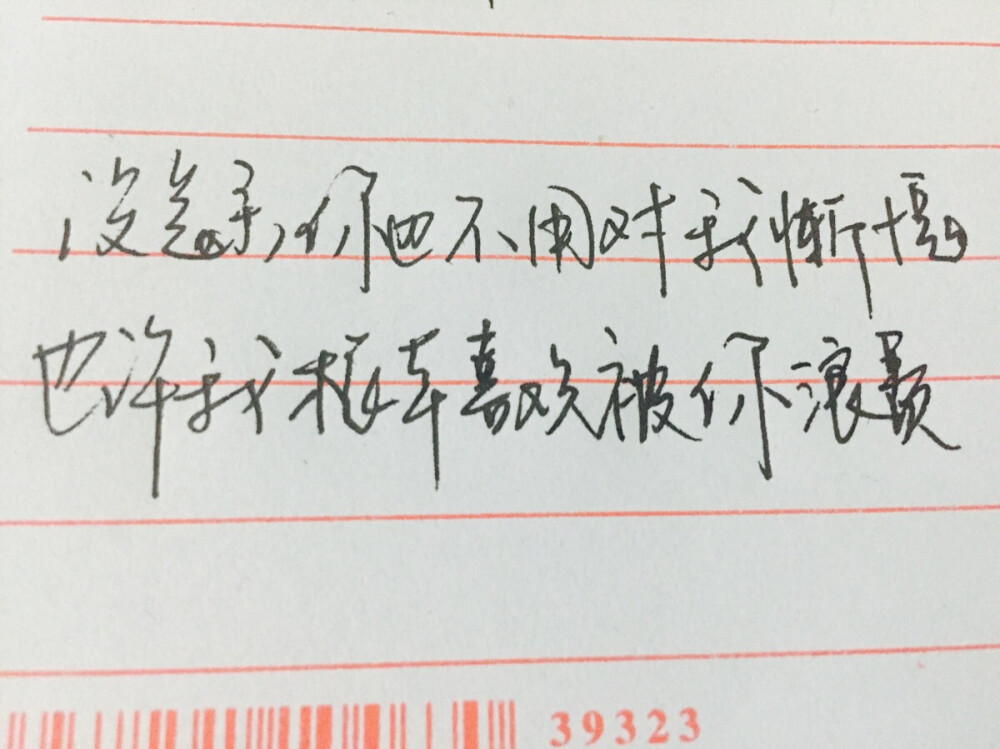 没关系,你也不用对我惭愧
也许我根本喜欢被你浪费
39323